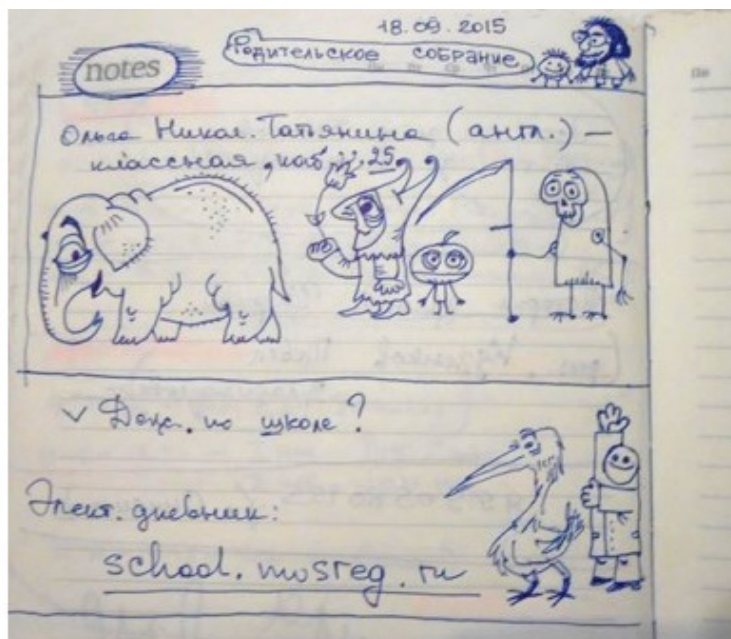 18.09.2015
notes
Родительское собрание
Ольга Никол. Татьянина (англ.) –
классная, каб. 25.
✓ Деж. по школе?
Элект. дневник:
school.mosreg.ru